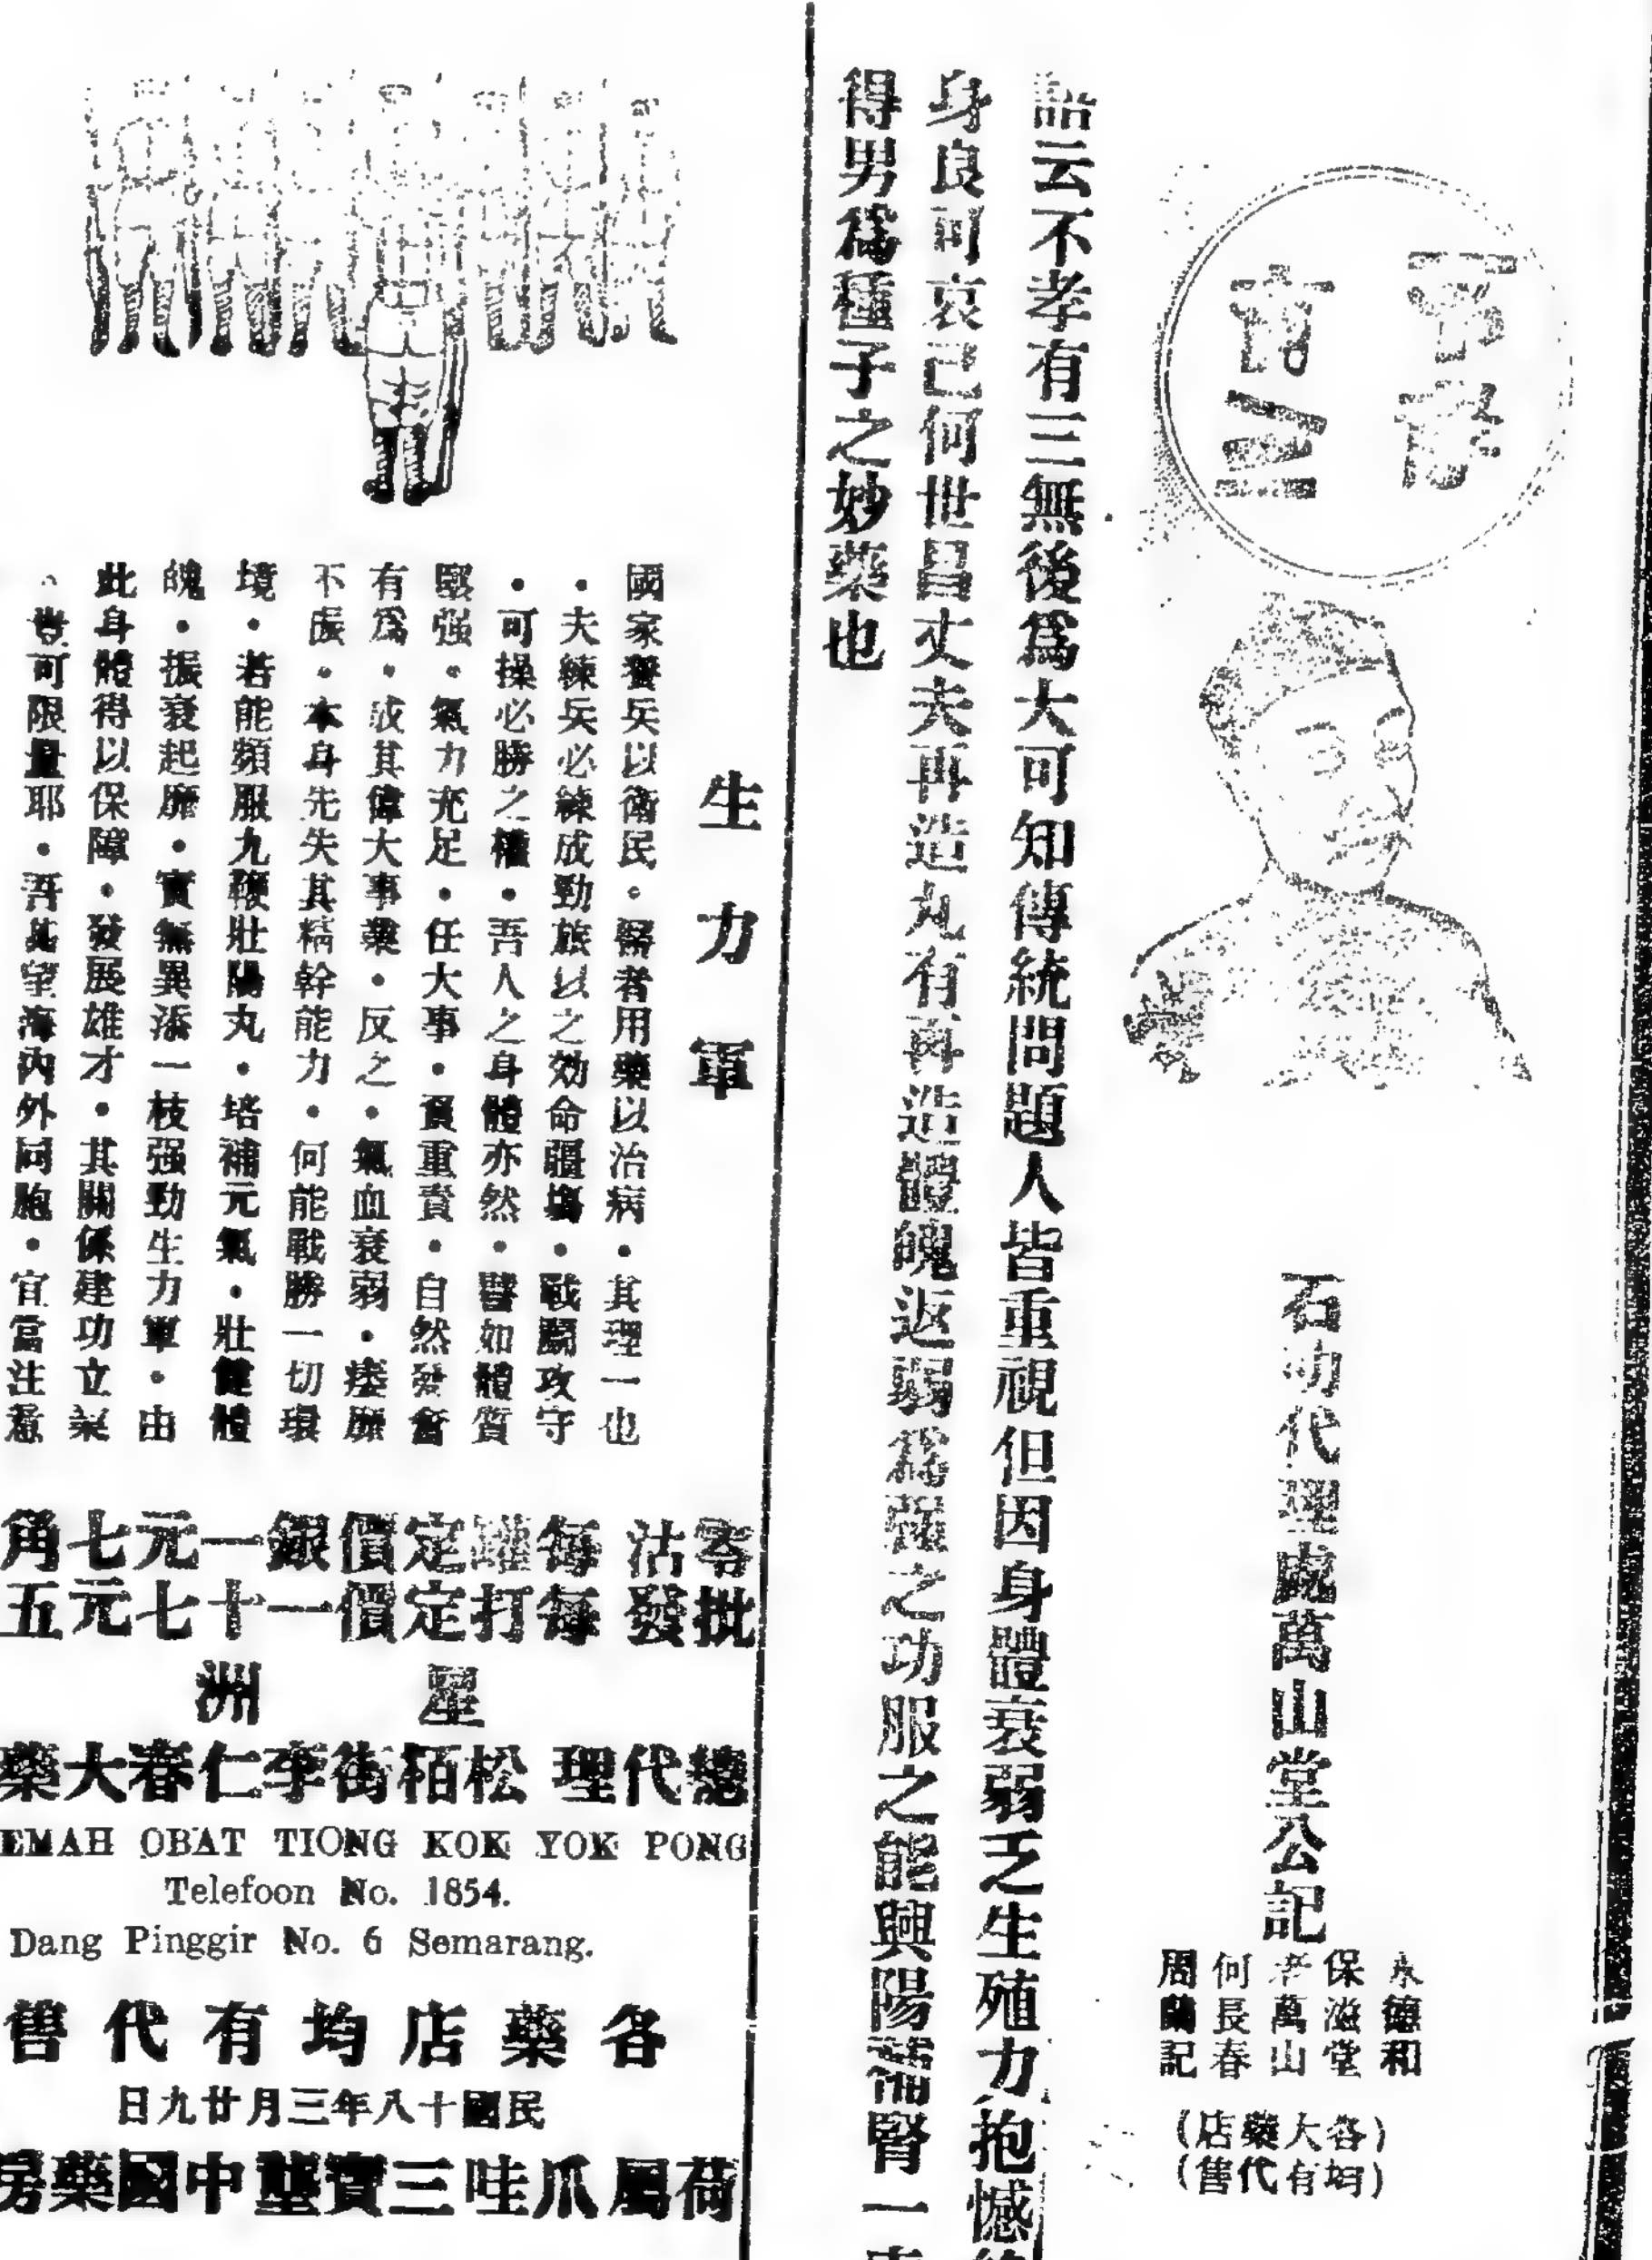 不孝
有三
石叻代理處萬山堂公記
永德和
保滋堂
老萬山
何長春
周蘭記
(各大藥店)
(均有代售)
語云不孝有三無後爲大可知傳統問題人皆重視但因身體衰弱乏生殖力抱憾
身良可哀己何世昌丈夫再造丸有再造體魄返弱爲强之功服之能興陽補腎一
得男爲種子之妙藥也
生力軍
國家養兵以衛民・醫者用藥以治病・其理一也
・夫練兵必練成勁旅以之効命疆塲・戰鬭攻守
・可操必勝之權・吾人之身體亦然・譬如體質
堅强・氣力充足・任大事・負重責・自然發奮
有爲・成其偉大事業・反之・氣血衰弱・痿靡
不振・本身先失其精幹能力・何能戰勝一切環
境・若能頻服九鞭壯陽丸・培補元氣・壯健體
魄・振衰起靡・實無異添一枝强勁生力軍・由
此身體得以保障・發展雄才・其關係建功立業
・豈可限量耶・吾甚望海內外同胞・宜當注意
零沽每罐定價銀一元七角
批發每打定價一十七元五
星洲
總代理 松栢街李仁春大藥
EMAH OBAT TIONG KOK YOK PONG
Telefoon No. 1854.
Dang Pinggir No. 6 Semarang.
各藥店均有代售
民國十八年三月廿九日
荷屬爪哇三寶壟中國藥房